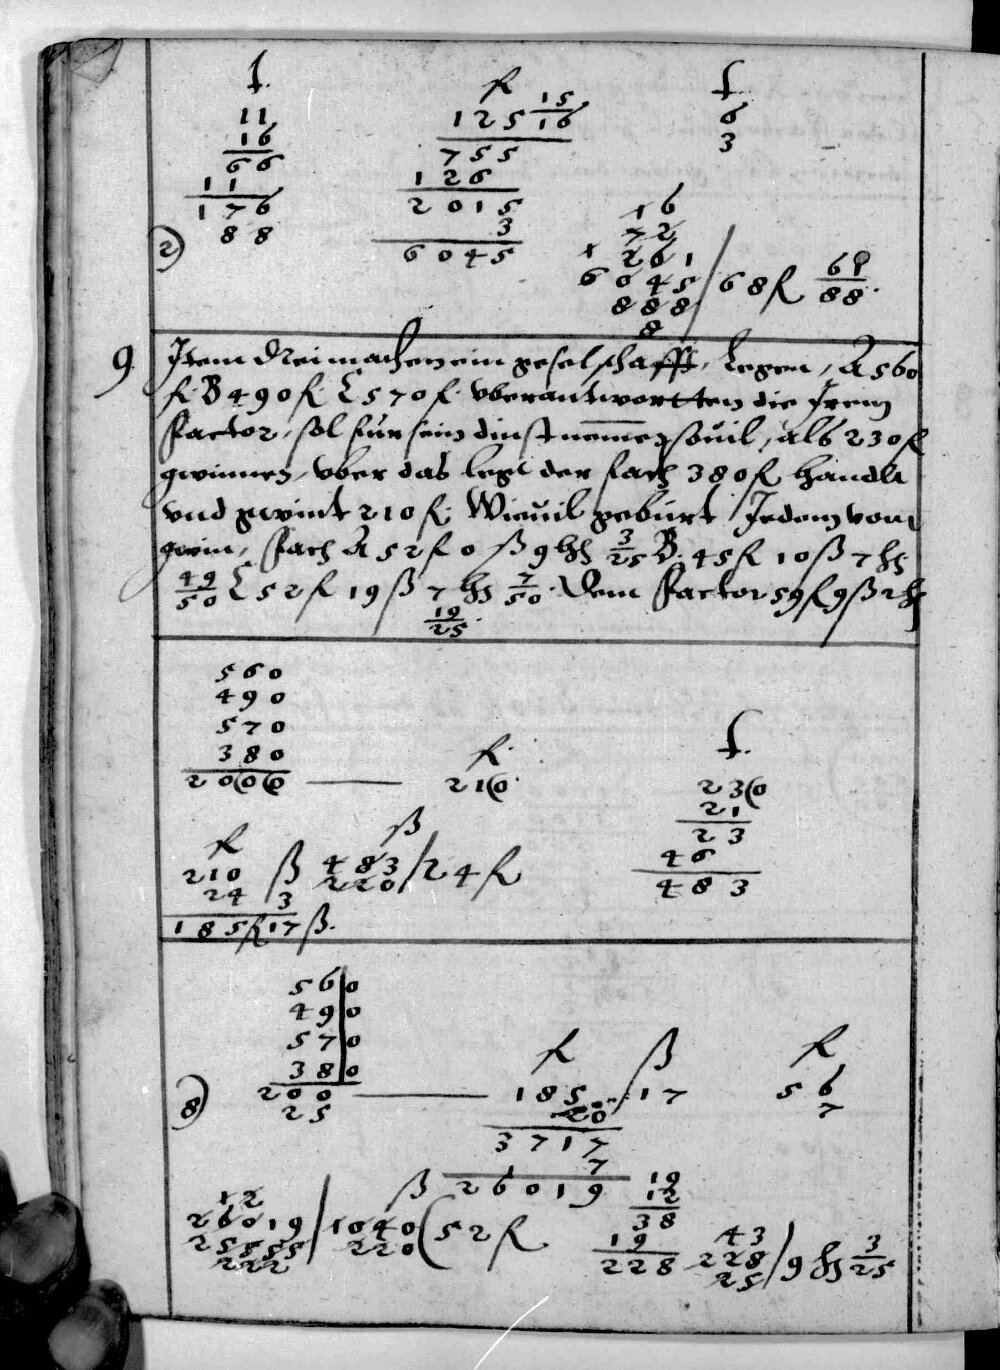 f.
11
16
66
11
176
88
2)
fl
125 15/16
755
126
2015
3
6045
f
6
3
16
72
x 261
6045 / 68 fl 61/88.
888
8
9. Item Drei machen ein geselschafft, Legen, A 560
fl. B 490 fl. C 570 fl. vberantwortten die Irem
Factor, sol fur sein dinst nemen souil, als 230 fl
gewinnen, vber das legt der fach 380 fl handlt
vnd gewint 210 fl. Wieuil geburt Jedem vom
gwin, fach A 52 fl 0 ß 9 hlr 3/25 B. 45 fl 10 ß 7 hlr
49/50 C 52 fl 19 ß 7 hlr 7/50. Dem Factor 59 fl 9 ß 2 hlr
19/25.
560
490
570
380
2000 —— fl. 210. f. 230
21
23
46
483
fl ß
210
24 3
185 fl 17 ß.
ß
483 / 24 fl
220
560
490
570
380
8) 200 —— fl 185 ß 17 fl 56
25 20 7
3717
7
26019
12
26019 / 1040 ( 52 fl
25555 220
222
ß
19
12
38
19
228
43
228 / 9 hlr 3/25
25